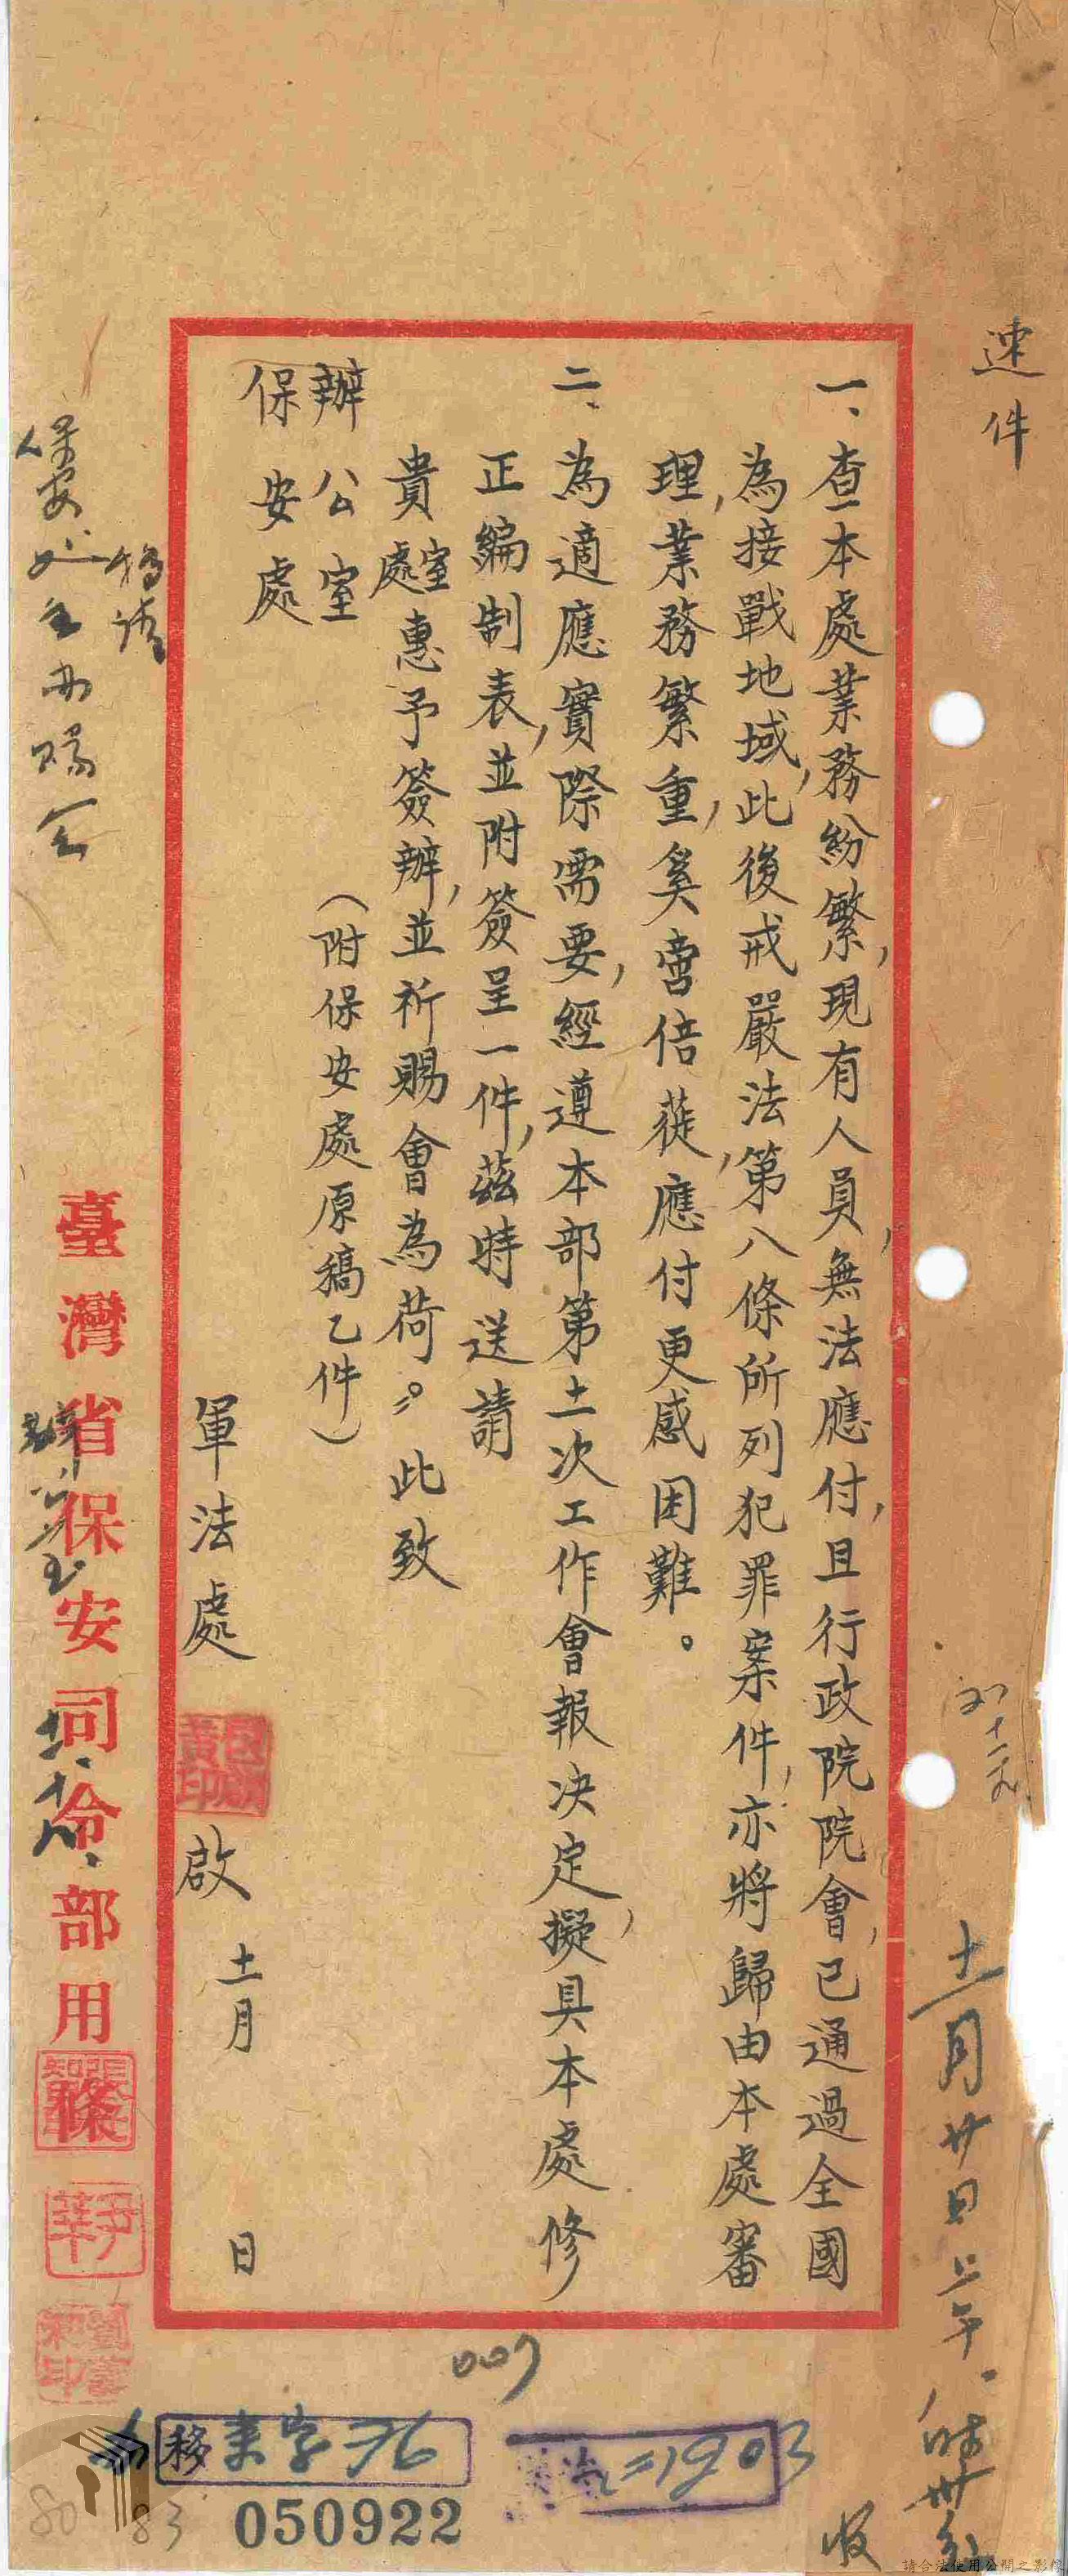 速件
十一月廿日上午八時卅分
收
一、查本處業務紛繁,現有人員,無法應付,且行政院院會,已通過全國
為接戰地域,此後戒嚴法第八條所列犯罪案件,亦將歸由本處審
理,業務繁重,奚啻倍蓰,應付更感困難。
二、為適應實際需要,經遵本部第十一次工作會報決定,擬具本處修
正編制表,並附簽呈一件,茲特送請
貴室處惠予簽辦,並祈賜會為荷。此致
辦公室
保安處
(附保安處原稿乙件)
軍法處 啟 十一月 日
臺灣省保安司令部用
007
移
050922
83
80
請合法使用公開之影像